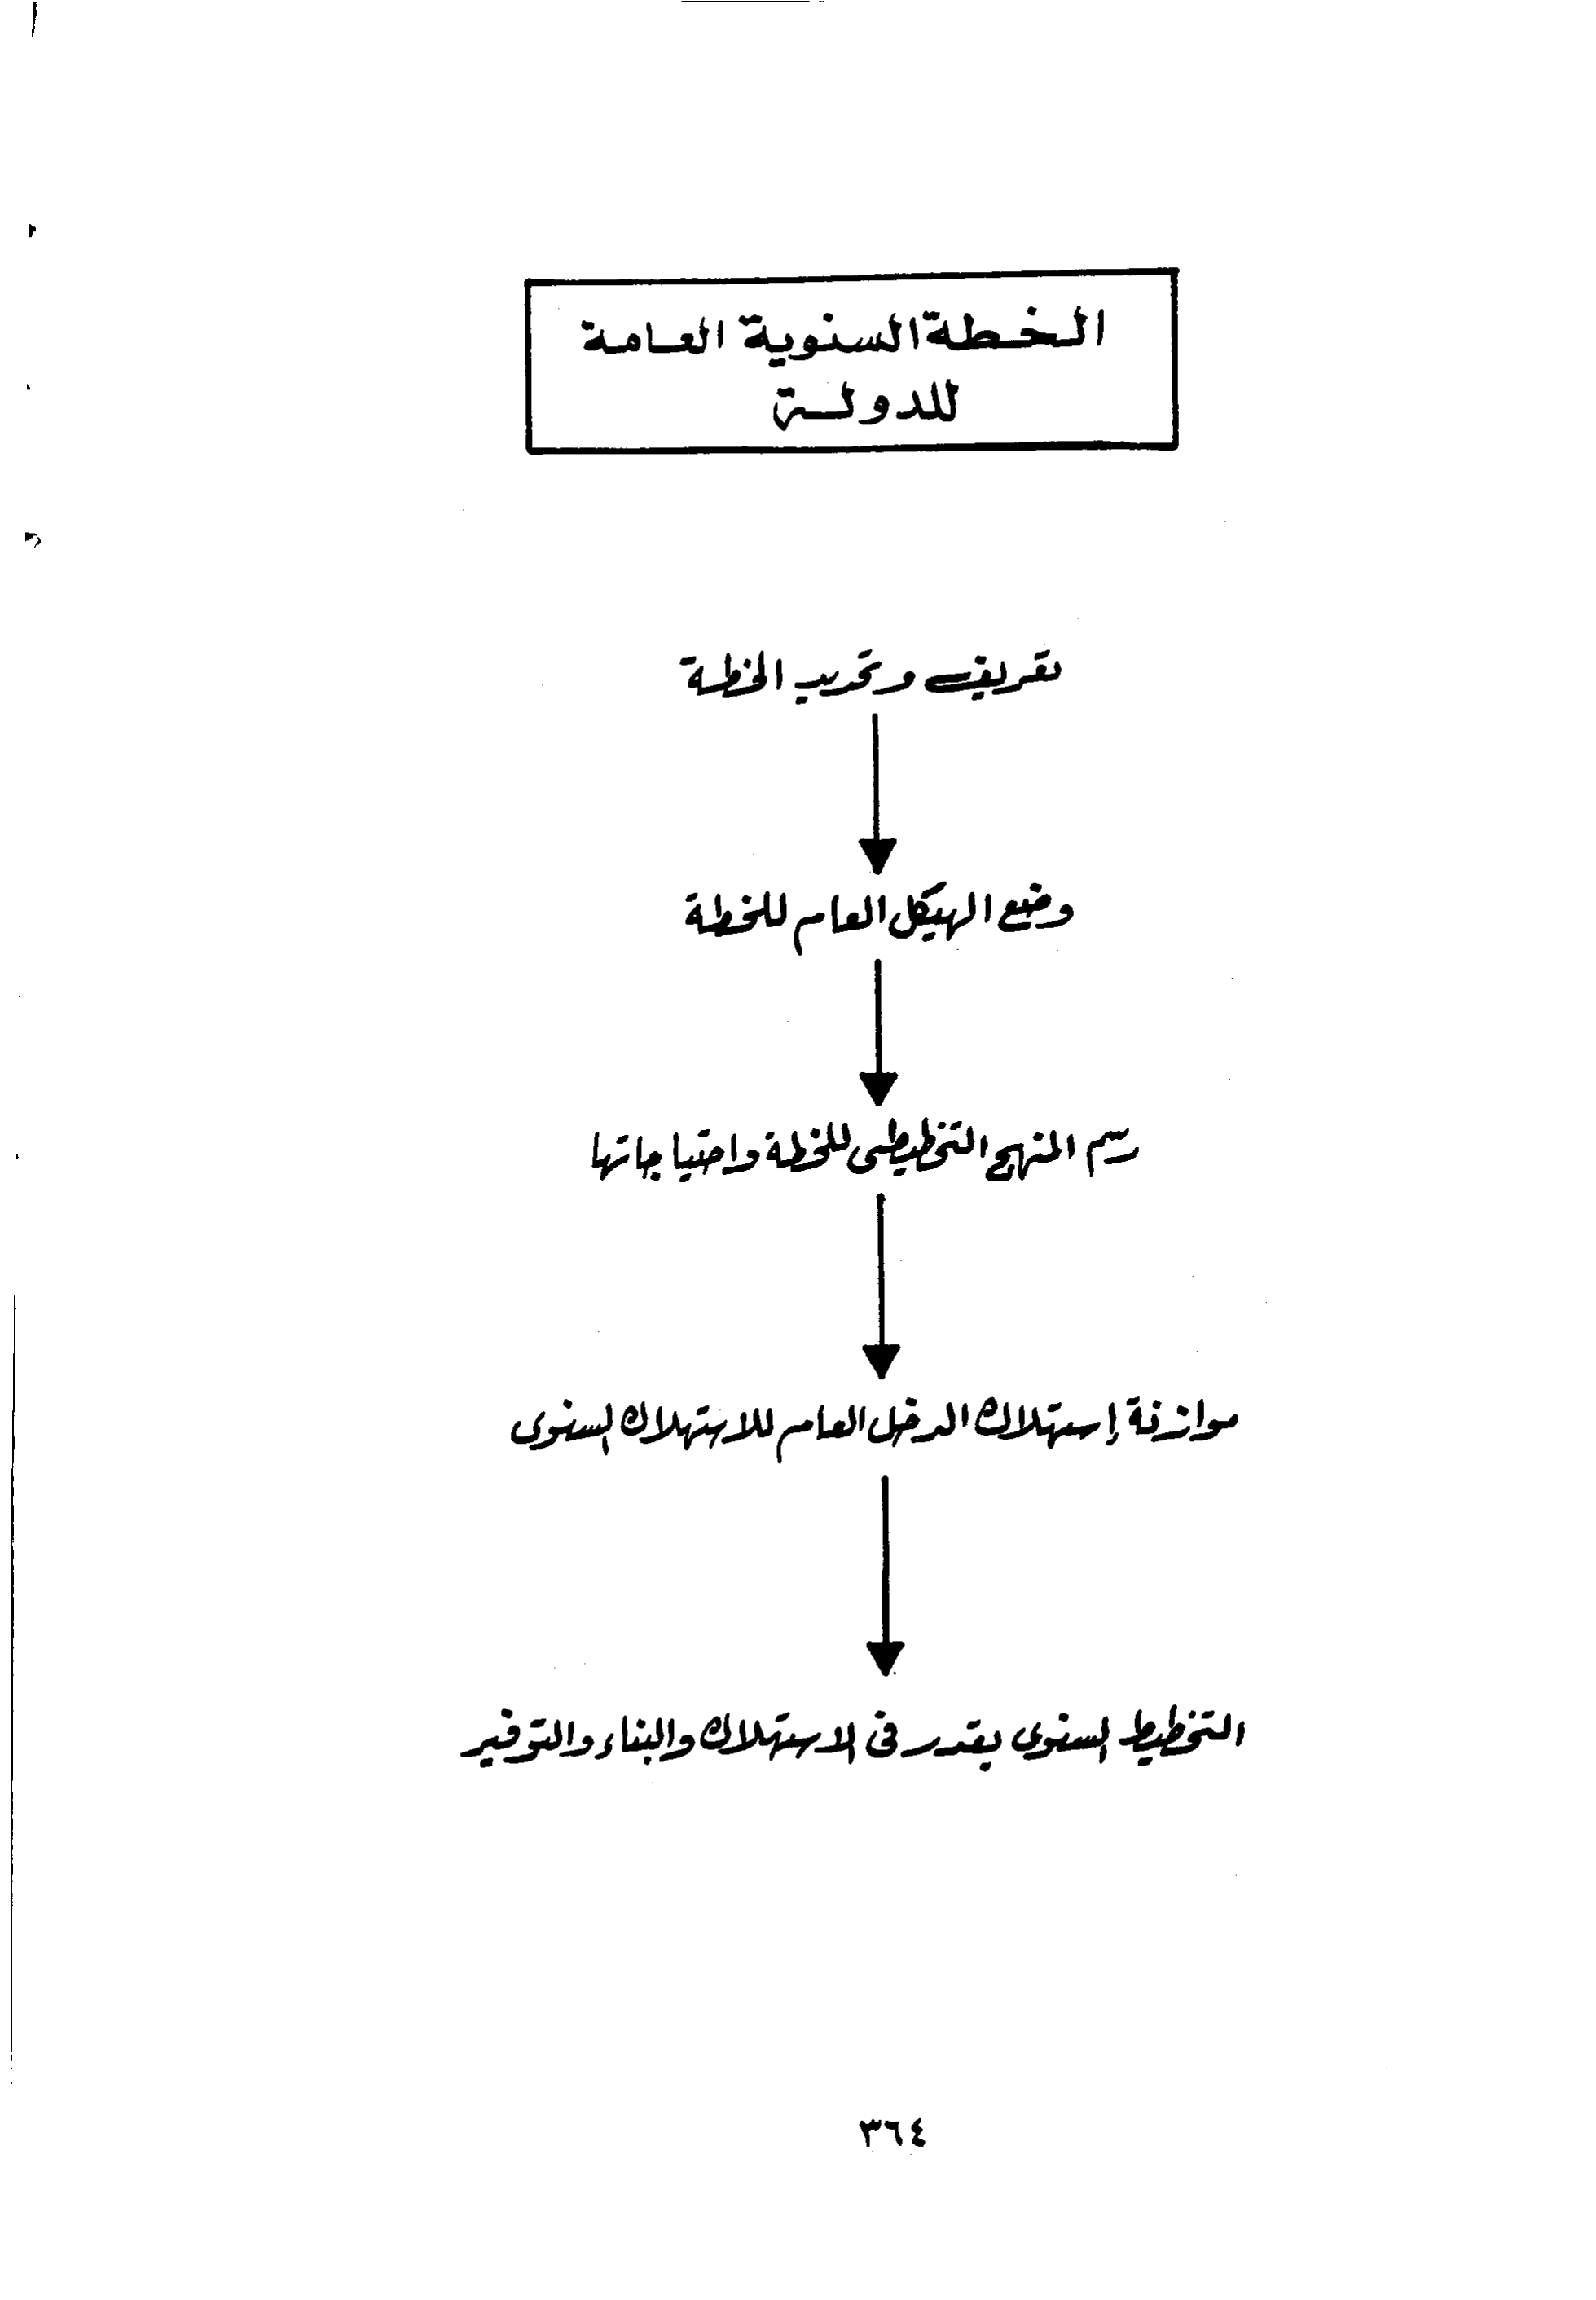 الخطة السنوية العامة
للدولة
تعريف وتحديد الخطة
وضع الهيكل العام للخطة
رسم المنهج التخطيطى للخطة واحتياجاتها
موازنة إستهلاك الدخل العام للاستهلاك السنوى
التخطيط السنوى يقدر فى الاستهلاك والبناء والتوفير
٣٦٤